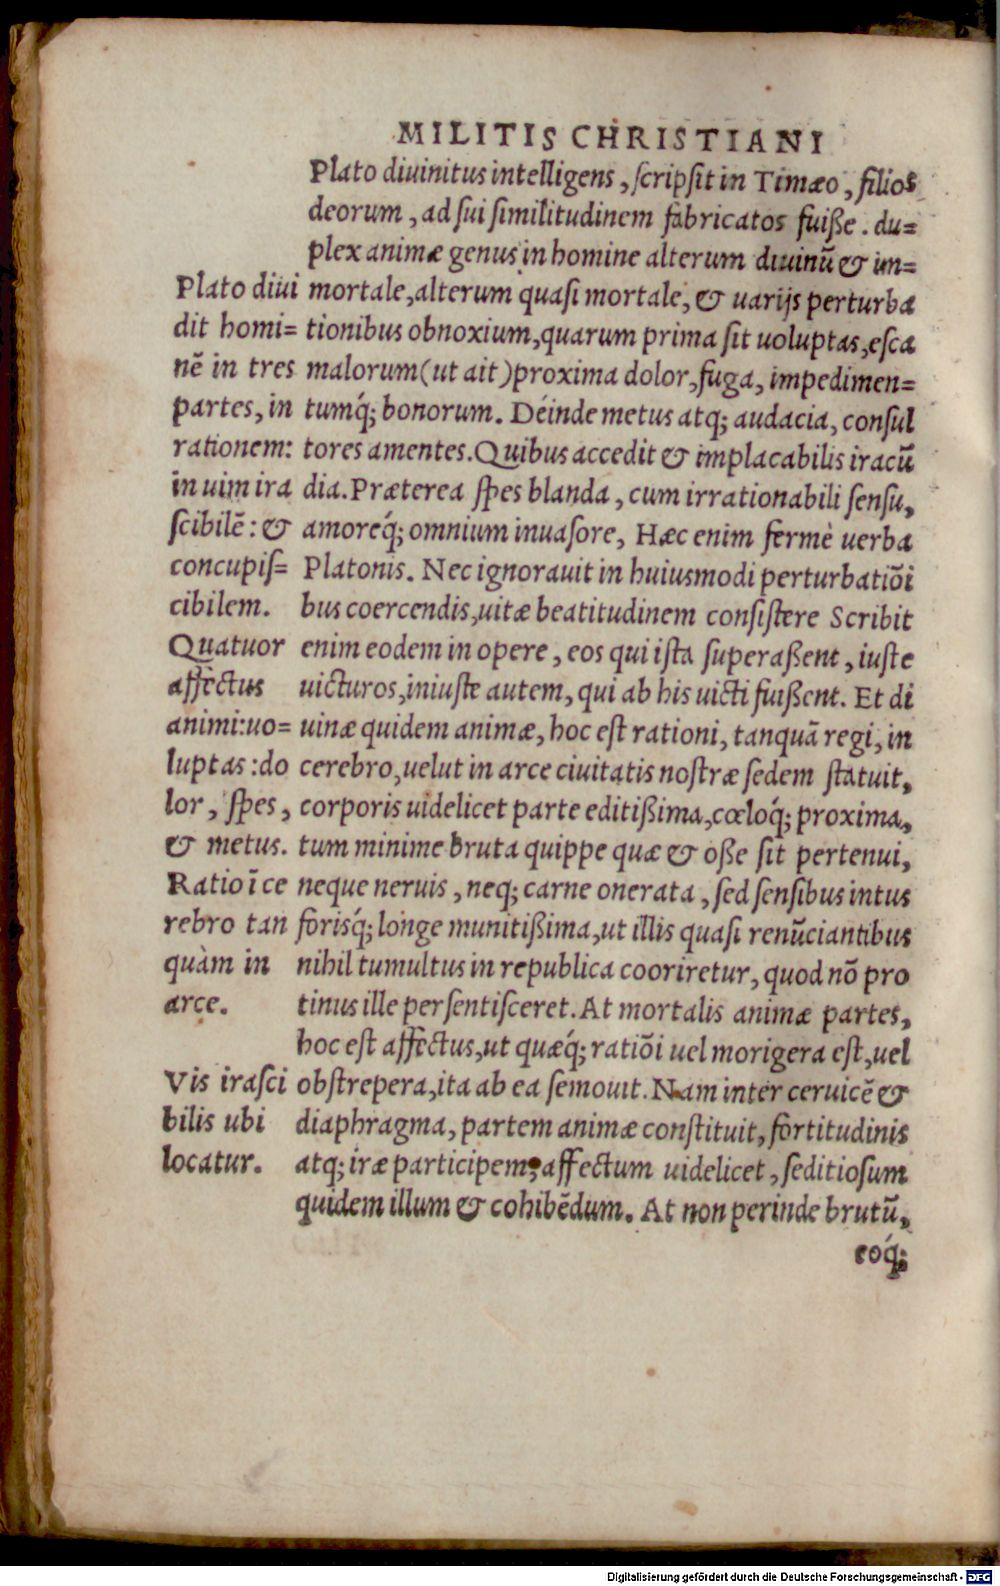 MILITIS CHRISTIANI
Plato diuinitus intelligens, ſcripſit in Timæo, filios
deorum, ad ſui ſimilitudinem fabricatos fuiße. du=
plex animæ genus in homine alterum diuinū & im=
mortale, alterum quaſi mortale, & uarijs perturba
tionibus obnoxium, quarum prima ſit uoluptas, eſca
malorum (ut ait) proxima dolor, fuga, impedimen=
tumq́; bonorum. Déinde metus atq; audacia, conſul
tores amentes. Quibus accedit & implacabilis iracū
dia. Præterea ſpes blanda, cum irrationabili ſenſu,
amoreq́; omnium inuaſore, Hæc enim fermè uerba
Platonis. Nec ignorauit in huiusmodi perturbatiōi
bus coercendis, uitæ beatitudinem conſiſtere Scribit
enim eodem in opere, eos qui iſta ſuperaßent, iuſte
uicturos, iniuſte autem, qui ab his uicti fuißent. Et di
uinæ quidem animæ, hoc eſt rationi, tanquā regi, in
cerebro, uelut in arce ciuitatis noſtræ ſedem ſtatuit,
corporis uidelicet parte editißima, cœloq́; proxima,
tum minime bruta quippe quæ & oße ſit pertenui,
neque neruis, neq; carne onerata, ſed ſenſibus intus
forisq́; longe munitißima, ut illis quaſi renūciantibus
nihil tumultus in republica cooriretur, quod nō pro
tinus ille perſentiſceret. At mortalis animæ partes,
hoc eſt affectus, ut quæq́; ratiōi uel morigera eſt, uel
obſtrepera, ita ab ea ſemouit. Nam inter ceruicē &
diaphragma, partem animæ conſtituit, fortitudinis
atq; iræ participem, affectum uidelicet, ſeditioſum
quidem illum & cohibēdum. At non perinde brutū,
eoq́;
Plato diui
dit homi=
nē in tres
partes, in
rationem:
in uim ira
ſcibilē: &
concupiſ=
cibilem.
Quatuor
affectus
animi: uo=
luptas: do
lor, ſpes,
& metus.
Ratio ī ce
rebro tan
quàm in
arce.
Vis iraſci
bilis ubi
locatur.
Digitalisierung gefördert durch die Deutsche Forschungsgemeinschaft - DFG